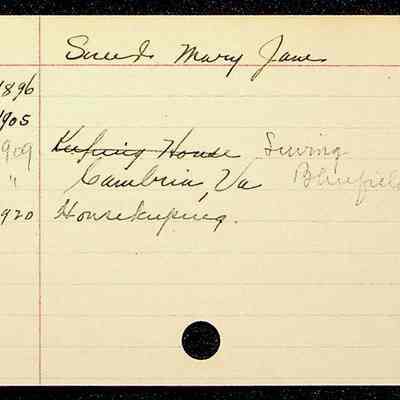 Sneed Mary Jane
1896
1905
1909 Keeping House Sewing
" Cambria, Va Bluefield
1920 Housekeeping.